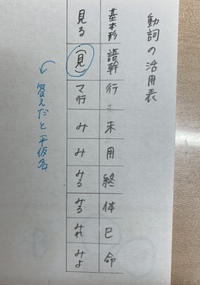 動詞の活用表
基本形 語幹 行 未 用 終 体 已 命
見る (見) マ行 み み みる みる みれ みよ
答えだと平仮名